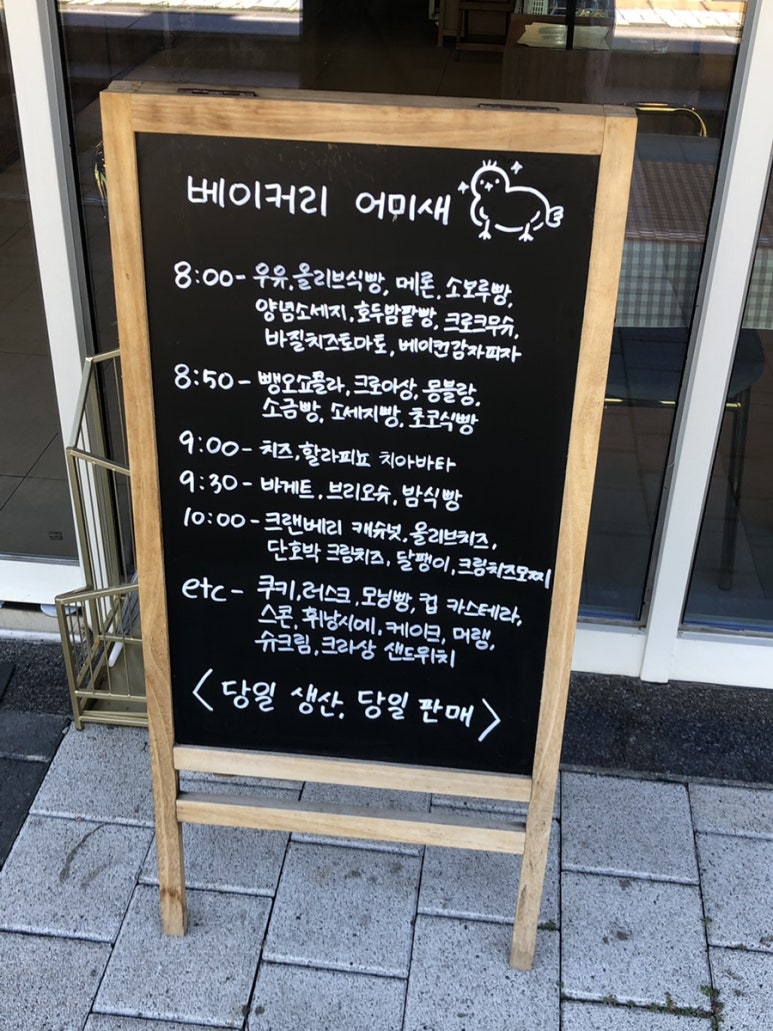 베이커리 어미새
8:00- 우유,올리브식빵, 메론, 소보루빵,
양념소세지, 호두밤팥빵, 크로크무슈,
바질치즈토마토, 베이컨감자피자
8:50- 뺑오쇼콜라, 크로아상, 몽블랑,
소금빵, 소세지빵, 초코식빵
9:00- 치즈,할라피뇨 치아바타
9:30- 바게트, 브리오슈, 밤식빵
10:00- 크랜베리 캐슈넛, 올리브치즈,
단호박 크림치즈, 달팽이, 크림치즈모찌
etc- 쿠키,러스크,모닝빵,컵 카스테라,
스콘, 휘낭시에, 케이크, 머랭,
슈크림, 크라상 샌드위치
<당일 생산, 당일 판매>